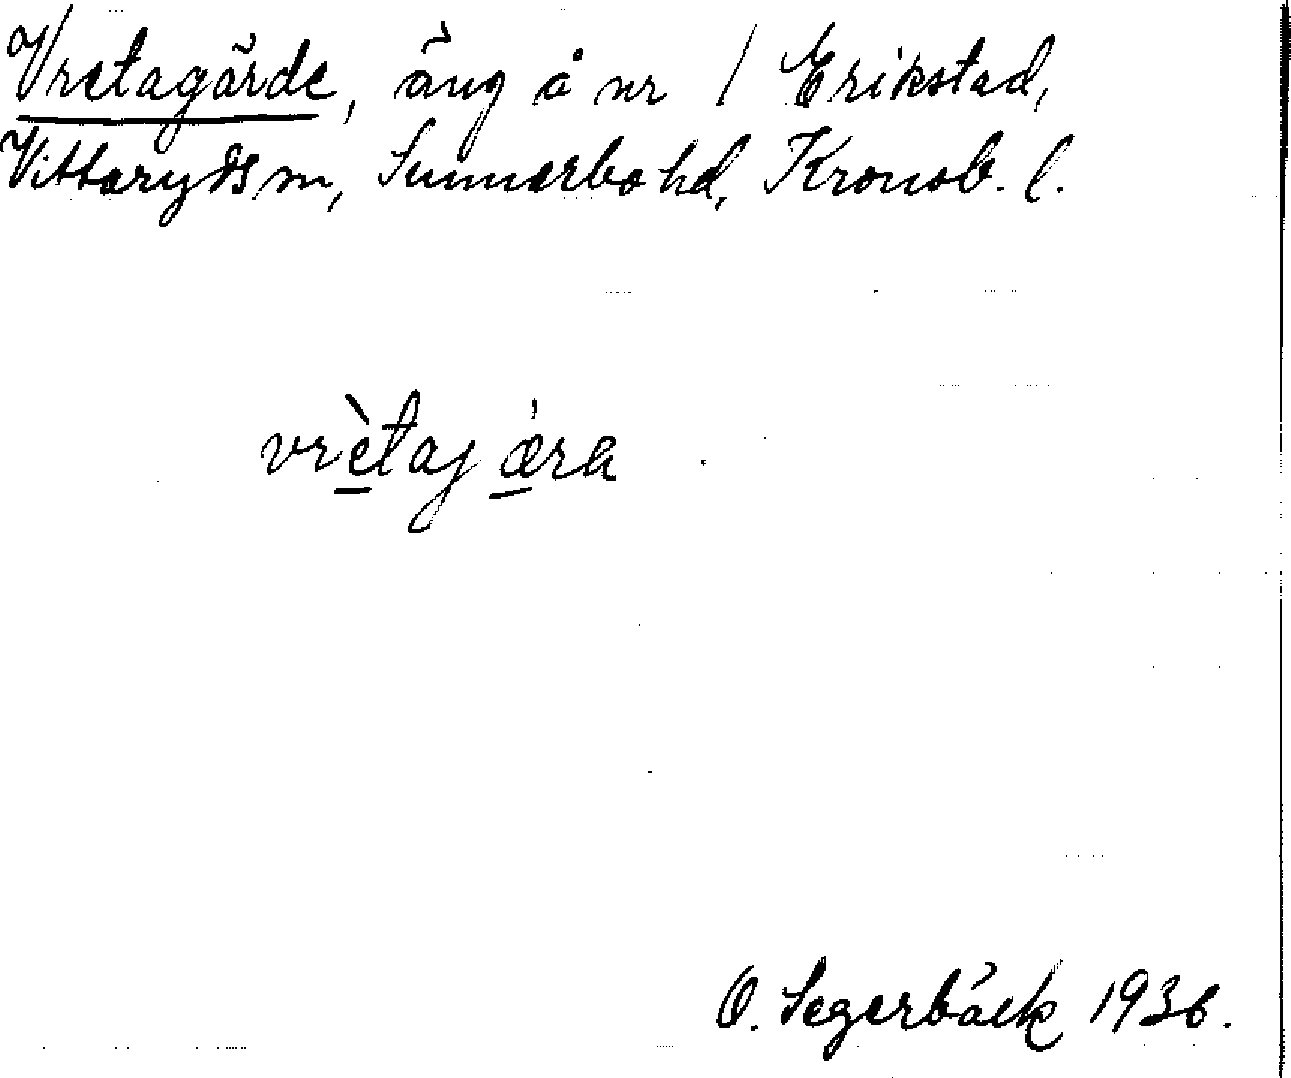 Vretagärde, äng å nr 1 Erikstad,
Vittaryds sn, Sunnerbo hd, Kronob. l.
vrètaj ǽra
O. Segerbäck 1936.